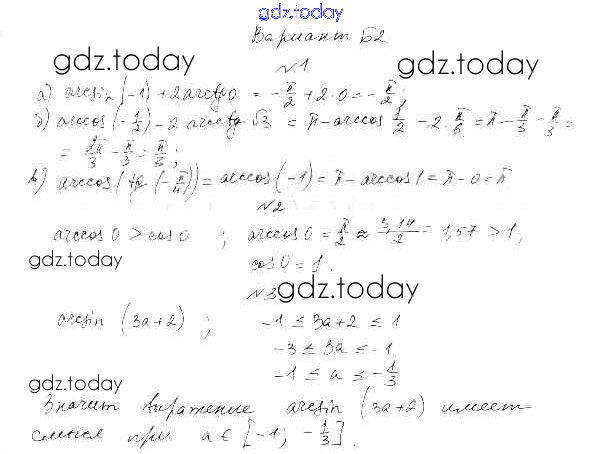 gdz.today
Вариант Б2
gdz.today gdz.today
№1
а) arcsin(-1) + 2arctg0 = -π/2 + 2·0 = -π/2;
б) arccos(-1/2) - 2 arcctg √3 = π - arccos 1/2 - 2·π/6 = π - π/3 - π/3 =
= 2π/3 - π/3 = π/3;
в) arccos(tg(-π/4)) = arccos(-1) = π - arccos1 = π - 0 = π
№2
arccos0 > cos0 ; arccos0 = π/2 ≈ 3,14/2 = 1,57 > 1,
gdz.today cos0 = 1.
№3 gdz.today
arcsin (3a+2) ; -1 ≤ 3a+2 ≤ 1
-3 ≤ 3a ≤ -1
gdz.today -1 ≤ a ≤ -1/3
Значит выражение arcsin (3a+2) имеет
смысл при a ∈ [-1; -1/3].